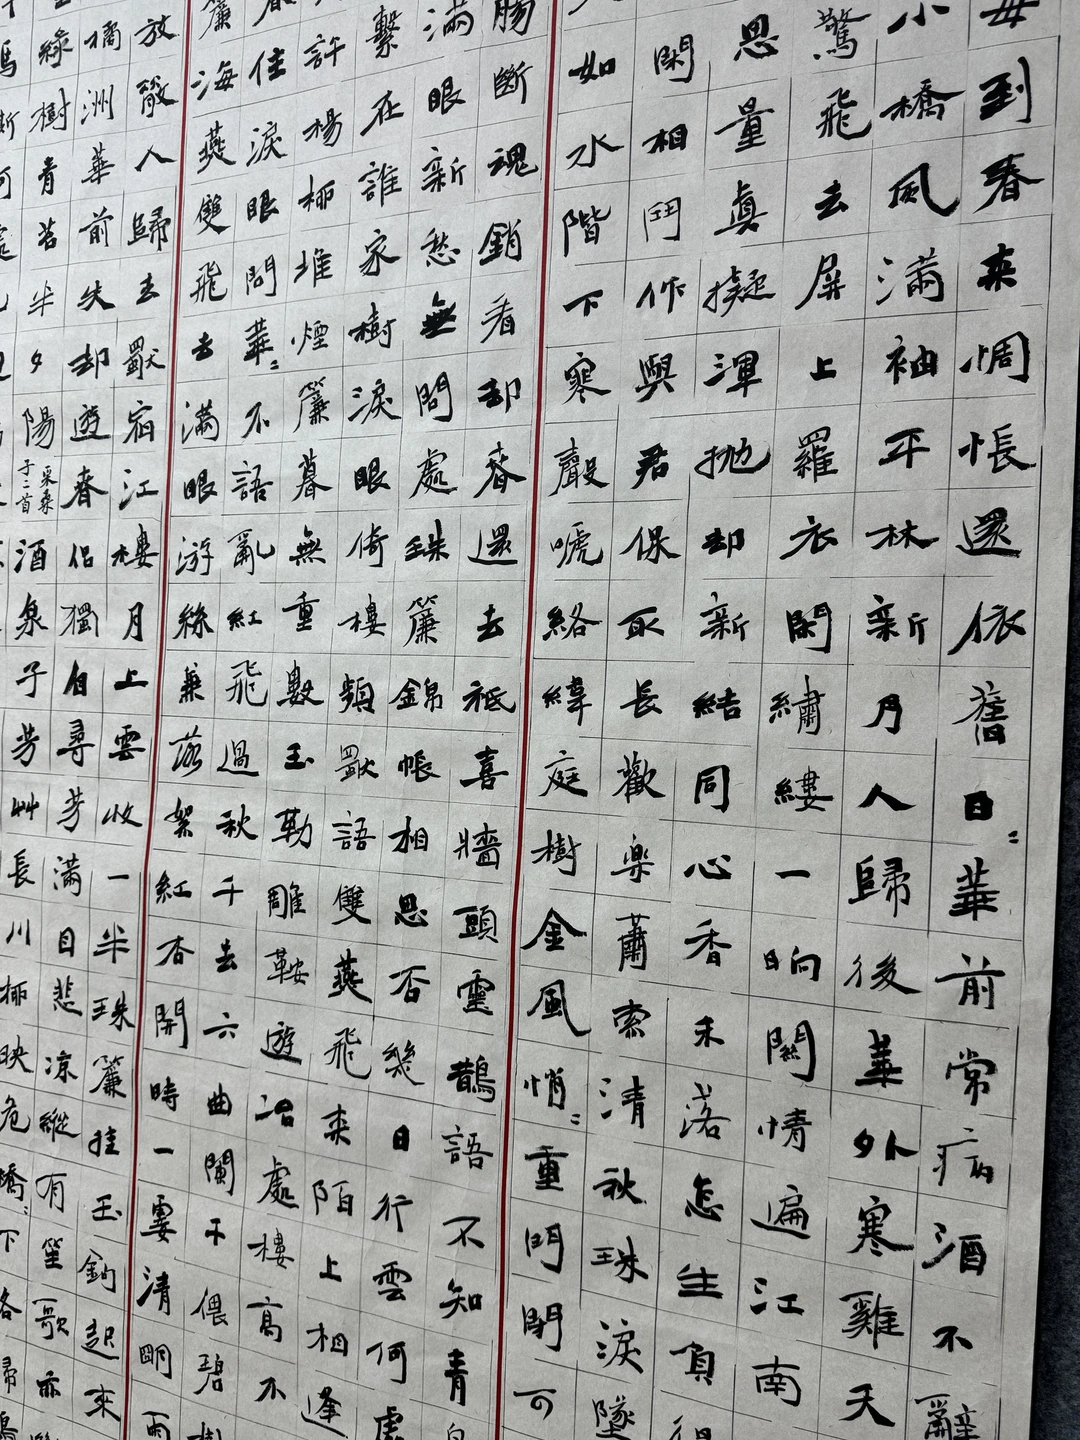 每到春来惆悵還依舊日〻華前常病酒不辭
小橋風滿袖平林新月人歸後華外寒雞天
驚飛去屏上羅衣閑繡縷一晌關情遍江南
思量真擬渾抛却新結同心香未落怎生負
閑相鬥作與君保取長歡樂蕭索清秋珠淚墜
如水階下寒聲嗁絡緯庭樹金風悄〻重門閉可
腸斷魂銷看却春還去祗喜牆頭靈鵲語不知青
滿眼新愁無問處珠簾錦帳相思否幾日行雲何處
繫在誰家樹淚眼倚樓頻獨語雙燕飛来陌上相逢
許楊柳堆煙簾幕無重數玉勒雕鞍遊冶處樓高不
住淚眼問華〻不語亂紅飛過秋千去六曲闌干偎碧樹
簾海燕雙飛去滿眼游絲兼落絮紅杏開時一霎清明雨
放散人歸去獨宿江樓月上雲收一半珠簾挂玉鉤起來
橘洲華前失却遊春侣獨自尋芳滿目悲涼縱有笙歌亦
綠樹青苔半夕陽采桑子二首酒泉子芳艸長川柳映危橋〻下